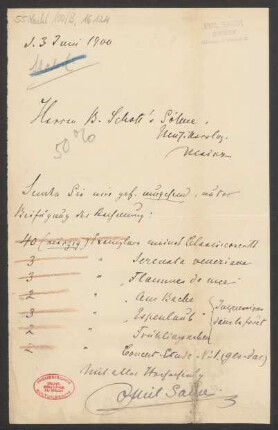 d. 3 Juni 1900
Herren B. Schott's Söhne,
Musikverlag
Mainz
50%
Senden Sie mir gef. umgehend, unter
Beifügung der Rechnung:
40 (vierzig) Exemplare meines Clavierconcerts
3 " Serenata veneziana
3 " Flammes de mer
2 " Am Bache
3 " Espenlaub
2 " Frühlings
2 Concert-Etude No 1 (Ges-dur)
Mit aller Hochachtung
Emil Sauer